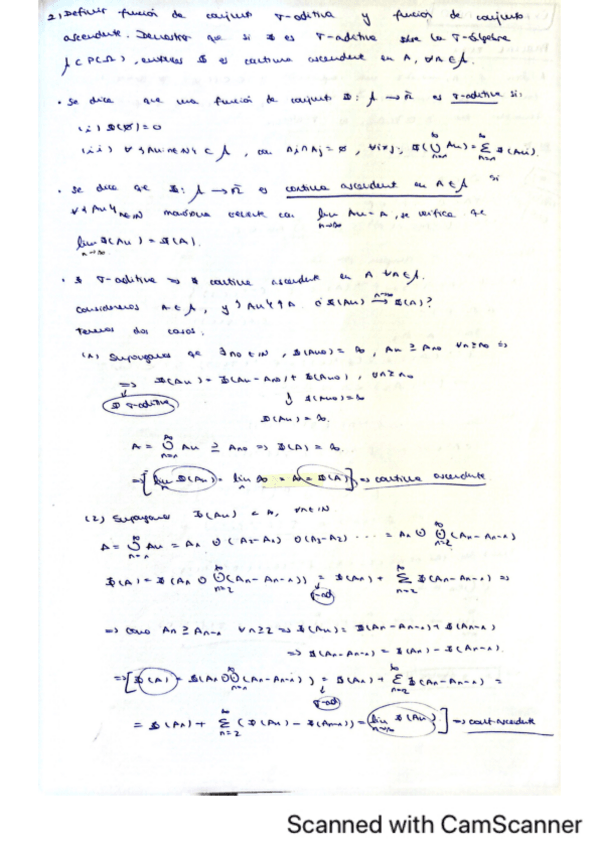 2) Definir función de conjunto σ-aditiva y función de conjunto
ascendente. Demostrar que si Φ es σ-aditiva sobre la σ-álgebra
𝒜 ⊂ P(Ω), entonces Φ es continua ascendente en A, ∀A∈𝒜.
· Se dice que una función de conjunto Φ: 𝒜 → R̄ es σ-aditiva si:
(i) Φ(∅)=0
(ii) ∀ {An}n∈N ⊂ 𝒜, con Ai∩Aj=∅, ∀i≠j, Φ(∪An) = Σ Φ(An).
· Se dice que Φ: 𝒜 → R̄ es continua ascendent en A∈𝒜 si
∀{An}n∈N monótona creciente con lim n→∞ An = A, se verifica que
lim n→∞ Φ(An) = Φ(A).
· Φ σ-aditiva ⇒ Φ continua ascendente en A ∀A∈𝒜.
Consideremos A∈𝒜, y {An}↑A ¿Φ(An) n→∞ → Φ(A)?
Tenemos dos casos.
(1) Supongamos que ∃n0∈N, Φ(An0)=∞, An ⊇ An0 ∀n≥n0 ⇒
⇒ Φ(An) = Φ(An - An0) + Φ(An0), ∀n≥n0
Φ σ-aditiva
⇓ Φ(An0)=∞
Φ(An) = ∞.
A = ∪ n=1 ∞ An ⊇ An0 ⇒ Φ(A) = ∞.
⇒ [lim n Φ(An) = lim n ∞ = ∞ = Φ(A)] ⇒ continua ascendente
(2) Supongamos Φ(An) < ∞, ∀n∈N.
A = ∪ n=1 ∞ An = A1 ∪ (A2-A1) ∪ (A3-A2) ... = A1 ∪ ∪ n=2 ∞ (An-An-1)
Φ(A) = Φ(A1 ∪ ∪ n=2 ∞ (An-An-1)) = Φ(A1) + Σ n=2 ∞ Φ(An-An-1) ⇒
σ-ad
⇒ como An ⊇ An-1 ∀n≥2 ⇒ Φ(An) = Φ(An-An-1) + Φ(An-1)
⇒ Φ(An-An-1) = Φ(An) - Φ(An-1).
⇒ [Φ(A) = Φ(A1 ∪ ∪(An-An-1)) = Φ(A1) + Σ n=2 ∞ Φ(An-An-1) =
σ-ad
= Φ(A1) + Σ n=2 ∞ (Φ(An) - Φ(An-1)) = lim n→∞ Φ(An)] ⇒ cont ascendente
Scanned with CamScanner